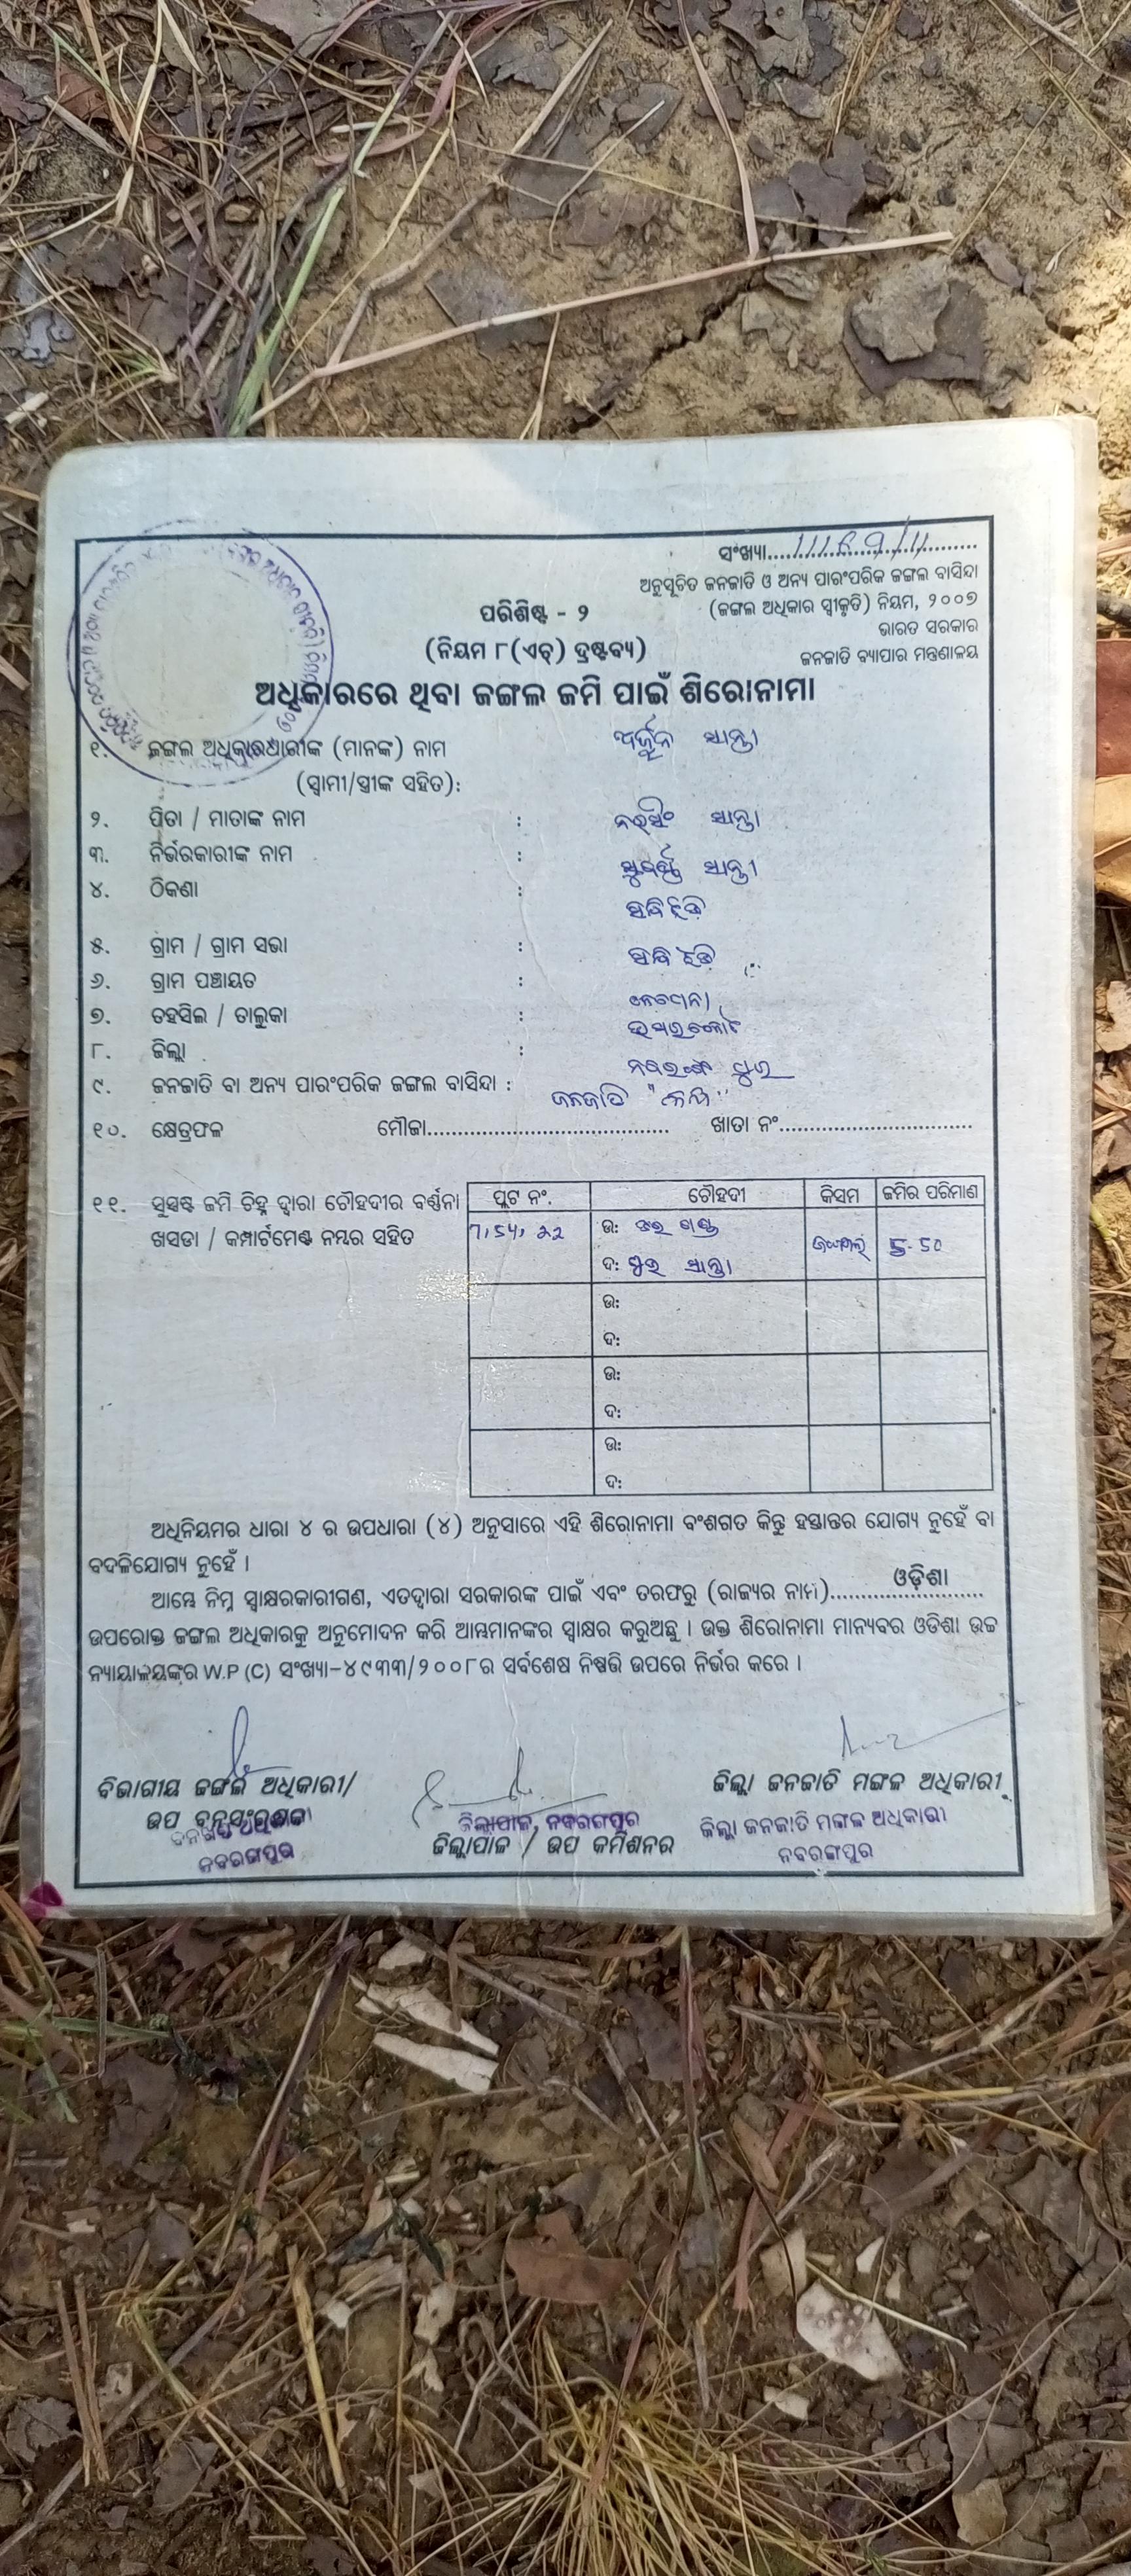 ସଂଖ୍ୟା..................................
ଅନୁସୂଚିତ ଜନଜାତି ଓ ଅନ୍ୟ ପାରଂପରିକ ଜଙ୍ଗଲ ବାସିନ୍ଦା
(ଜଙ୍ଗଲ ଅଧିକାର ସ୍ୱୀକୃତି) ନିୟମ, ୨୦୦୭
ଭାରତ ସରକାର
ଜନଜାତି ବ୍ୟାପାର ମନ୍ତ୍ରଣାଳୟ
ପରିଶିଷ୍ଟ - ୨
(ନିୟମ ୮(ଏଚ୍) ଦ୍ରଷ୍ଟବ୍ୟ)
ଅଧିକାରରେ ଥିବା ଜଙ୍ଗଲ ଜମି ପାଇଁ ଶିରୋନାମା
୧. ଜଙ୍ଗଲ ଅଧିକାରଧାରୀଙ୍କ (ମାନଙ୍କ) ନାମ ଅର୍ଜୁନ ସାନ୍ତା
(ସ୍ୱାମୀ/ସ୍ତ୍ରୀଙ୍କ ସହିତ):
୨. ପିତା / ମାତାଙ୍କ ନାମ : ନରସିଂ ସାନ୍ତା
୩. ନିର୍ଭରକାରୀଙ୍କ ନାମ : ସାନ୍ତା
୪. ଠିକଣା :
୫. ଗ୍ରାମ / ଗ୍ରାମ ସଭା :
୬. ଗ୍ରାମ ପଞ୍ଚାୟତ :
୭. ତହସିଲ / ତାଲୁକା : ଉମରକୋଟ
୮. ଜିଲ୍ଲା : ନବରଙ୍ଗପୁର
୯. ଜନଜାତି ବା ଅନ୍ୟ ପାରଂପରିକ ଜଙ୍ଗଲ ବାସିନ୍ଦା : ଜନଜାତି
୧୦. କ୍ଷେତ୍ରଫଳ ମୌଜା........................................ ଖାତା ନଂ................................
୧୧. ସୁସଷ୍ଟ ଜମି ଚିହ୍ନ ଦ୍ୱାରା ଚୌହଦୀର ବର୍ଣ୍ଣନା ପ୍ଲଟ ନଂ. ଚୌହଦୀ କିସମ ଜମିର ପରିମାଣ
ଖସଡା / କମ୍ପାର୍ଟମେଣ୍ଟ ନମ୍ବର ସହିତ ଉ: ଜଙ୍ଗଲ 5.50
ଦ: ସାନ୍ତା
ଉ:
ଦ:
ଉ:
ଦ:
ଉ:
ଦ:
ଅଧିନିୟମର ଧାରା ୪ ର ଉପଧାରା (୪) ଅନୁସାରେ ଏହି ଶିରୋନାମା ବଂଶଗତ କିନ୍ତୁ ହସ୍ତାନ୍ତର ଯୋଗ୍ୟ ନୁହେଁ ବା
ବଦଳିଯୋଗ୍ୟ ନୁହେଁ ।
ଆମ୍ଭେ ନିମ୍ନ ସ୍ୱାକ୍ଷରକାରୀଗଣ, ଏତଦ୍ଦ୍ୱାରା ସରକାରଙ୍କ ପାଇଁ ଏବଂ ତରଫରୁ (ରାଜ୍ୟର ନାମ)..........ଓଡ଼ିଶା..........
ଉପରୋକ୍ତ ଜଙ୍ଗଲ ଅଧିକାରକୁ ଅନୁମୋଦନ କରି ଆମ୍ଭମାନଙ୍କର ସ୍ୱାକ୍ଷର କରୁଅଛୁ । ଉକ୍ତ ଶିରୋନାମା ମାନ୍ୟବର ଓଡିଶା ଉଚ୍ଚ
ନ୍ୟାୟାଳୟଙ୍କର W.P (C) ସଂଖ୍ୟା-୪୯୩୩/୨୦୦୮ର ସର୍ବଶେଷ ନିଷ୍ପତ୍ତି ଉପରେ ନିର୍ଭର କରେ ।
ବିଭାଗୀୟ ଜଙ୍ଗଲ ଅଧିକାରୀ/ ଜିଲ୍ଲା ଜନଜାତି ମଙ୍ଗଳ ଅଧିକାରୀ
ଉପ ବନସଂରକ୍ଷକ ଜିଲ୍ଲାପାଳ, ନବରଙ୍ଗପୁର ଜିଲ୍ଲା ଜନଜାତି ମଙ୍ଗଳ ଅଧିକାରୀ
ନବରଙ୍ଗପୁର ଜିଲ୍ଲାପାଳ / ଉପ କମିଶନର ନବରଙ୍ଗପୁର